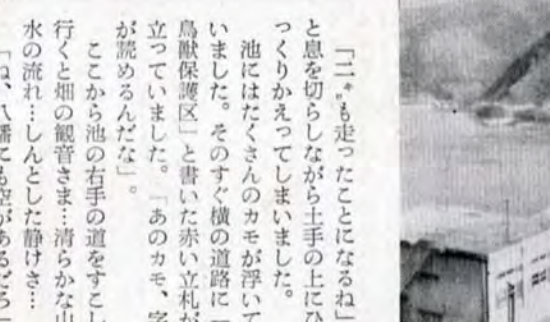 「二㌔も走ったことになるね」
と息を切らしながら土手の上にひ
っくりかえってしまいました。
池にはたくさんのカモが浮いて
いました。そのすぐ横の道路に「
鳥獣保護区」と書いた赤い立札が
立っていました。「あのカモ、字
が読めるんだな」。
ここから池の右手の道をすこし
行くと畑の観音さま…清らかな山
水の流れ…しんとした静けさ…
「ね、八幡にも空があるだろ